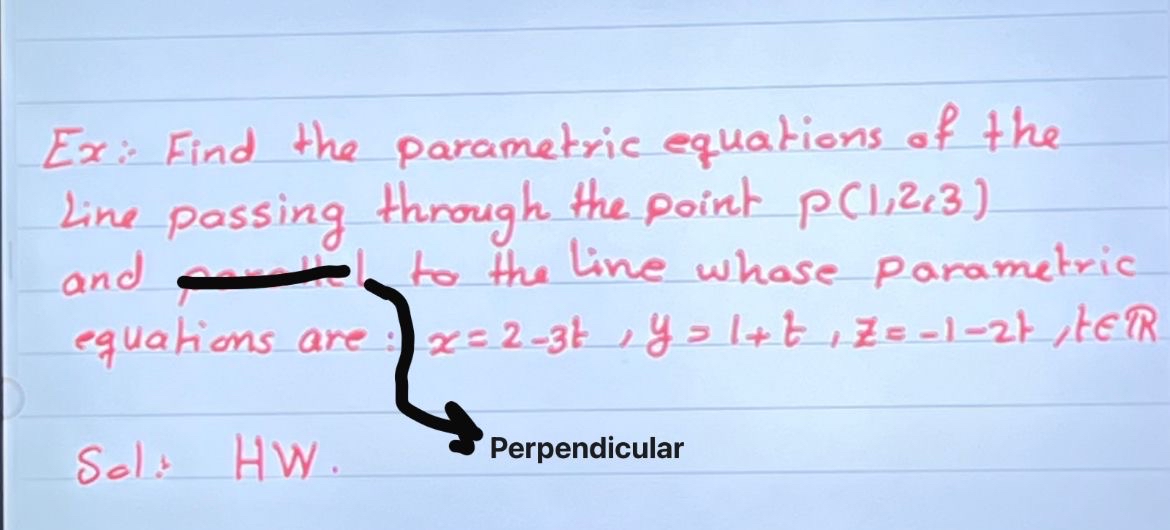 Ex:- Find the parametric equations of the
Line passing through the point P(1,2,3)
and parallel to the line whose parametric
equations are : x = 2-3t , y = 1+t , z = -1-2t , t∈ℝ
Perpendicular
Sol: HW.